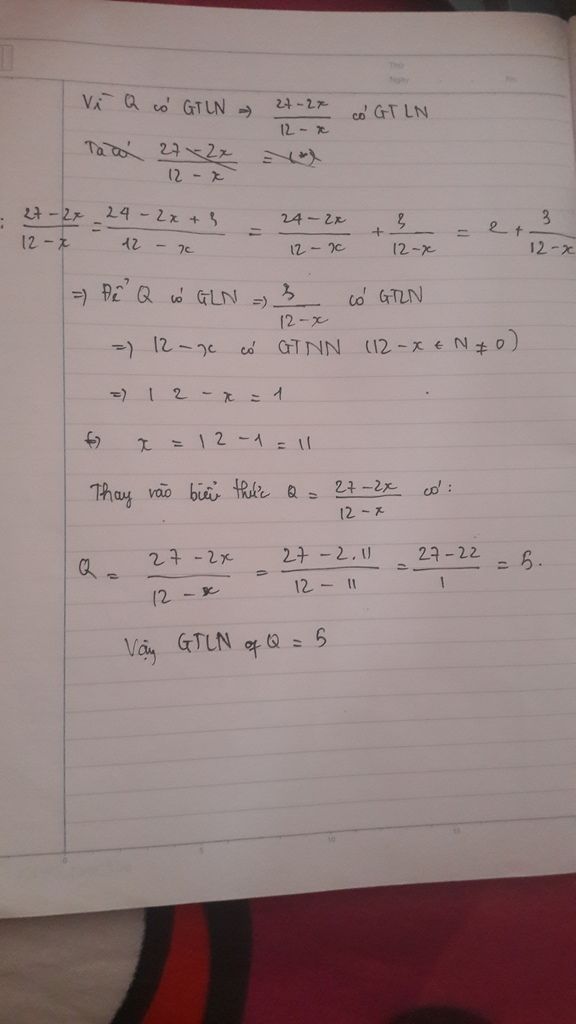 Vì Q có GTLN => 27-2x/12-x có GTLN
Ta có 27-2x/12-x =
: 27-2x/12-x = 24-2x+3/12-x = 24-2x/12-x + 3/12-x = 2+3/12-x
=> Để Q có GLN => 3/12-x có GTLN
=> 12-x có GTNN (12-x ∈ N ≠ 0)
=> 12-x = 1
<=> x = 12-1 = 11
Thay vào biểu thức Q = 27-2x/12-x có:
Q = 27-2x/12-x = 27-2.11/12-11 = 27-22/1 = 5.
Vậy GTLN of Q = 5